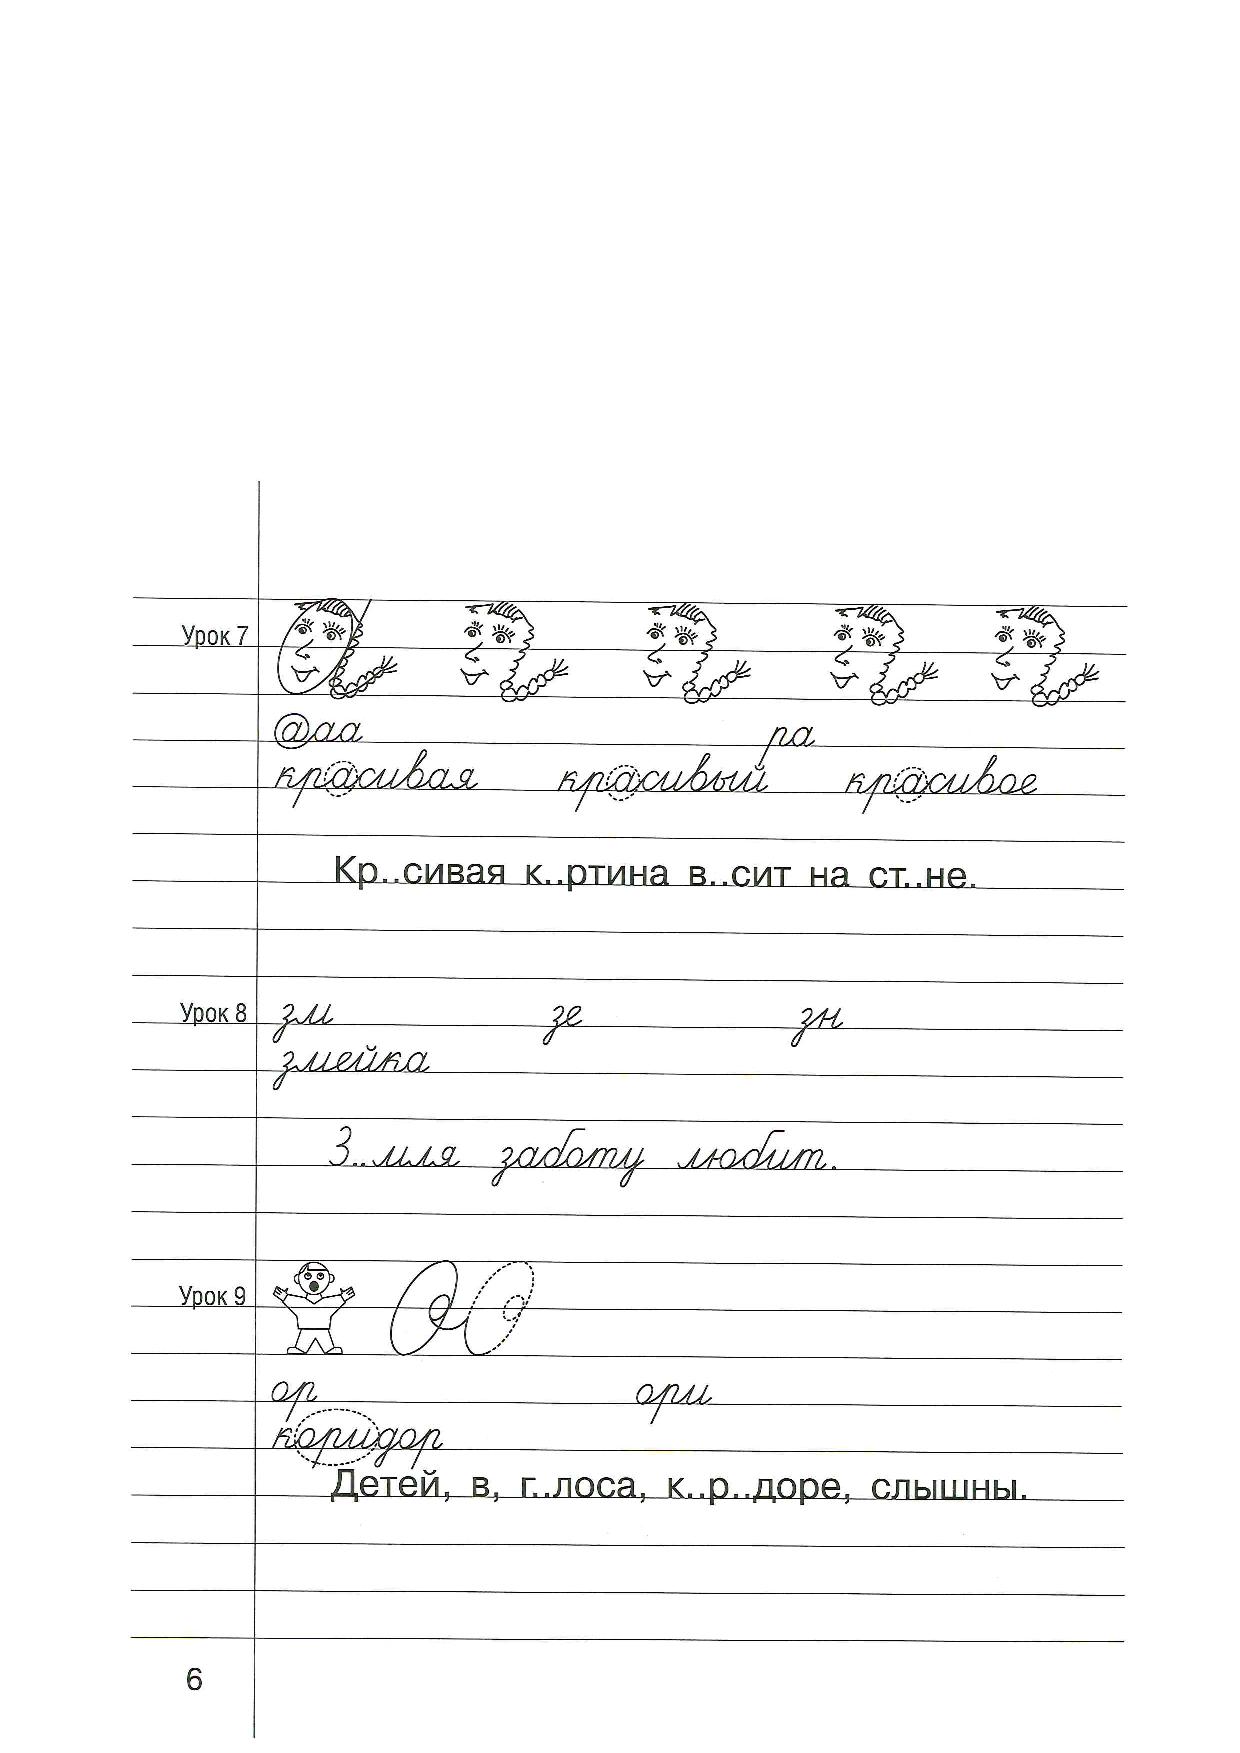 Урок 7
@аа ра
красивая красивый красивое
Кр..сивая к..ртина в..сит на ст..не.
Урок 8 зм зе зн
змейка
З..мля заботу любит.
Урок 9 О О
ор ори
коридор
Детей, в, г..лоса, к..р..доре, слышны.
6